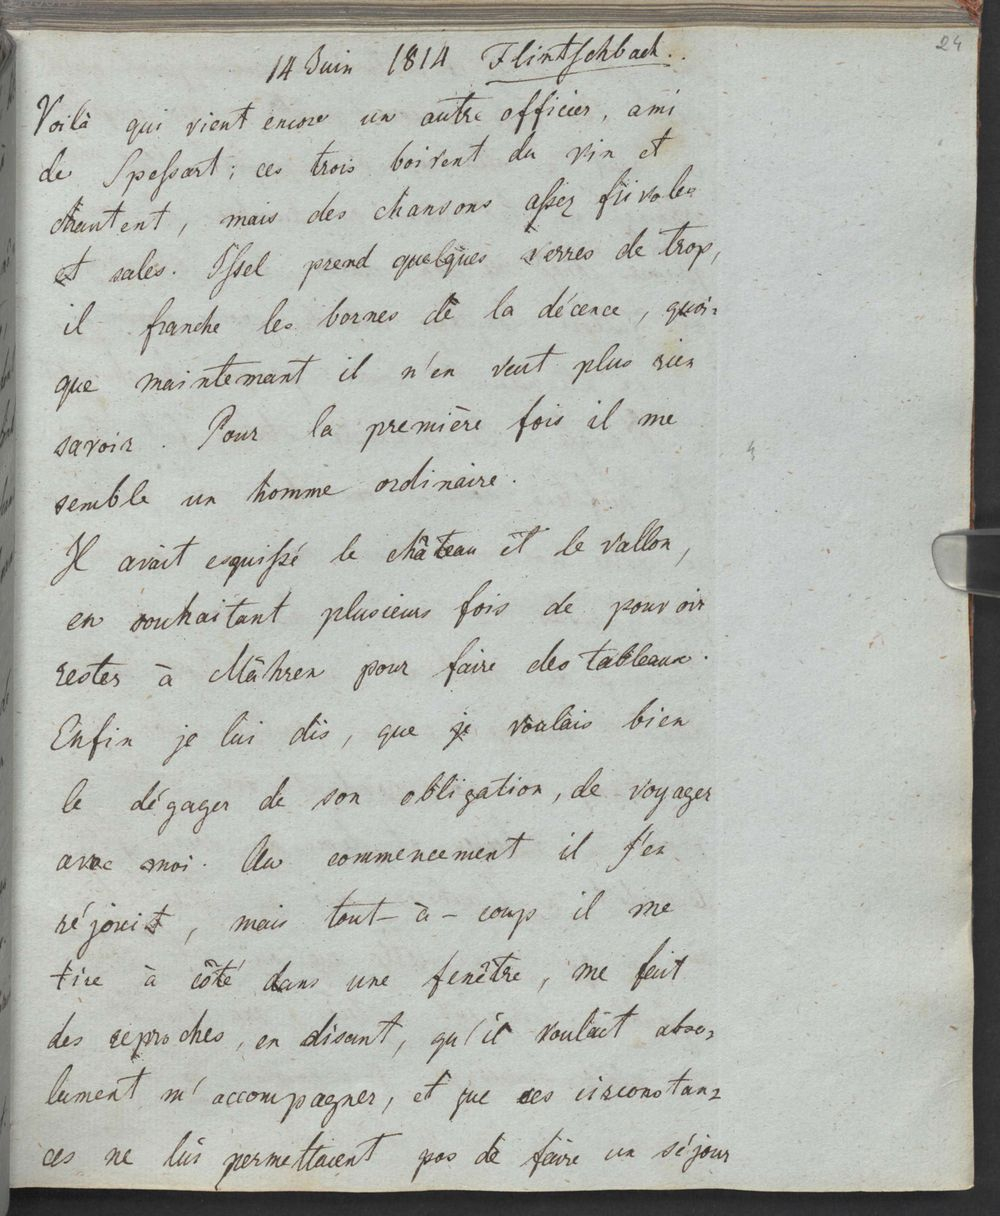 24
14 Juin 1814 Flintschbach.
Voilà qui vient encore un autre officier, ami
de Spessart; ces trois boivent du vin et
chantent, mais des chansons assez frivoles
et sales. Issel prend quelques verres de trop,
il franche les bornes de la décence, quoi-
que maintemant il n'en veut plus rien
savoir. Pour la première fois il me
semble un homme ordinaire.
Il avait esquissé le château et le vallon,
en souhaitant plusieurs fois de pouvoir
rester à Mähren pour faire des tableaux.
Enfin je lui dis, que je voulais bien
le dégager de son obligation, de voyager
avec moi. Au commencement il s'en
réjouit, mais tout-à-coup il me
tire à côté dans une fenêtre, me fait
des reproches, en disant, qu'il voulait abso-
lument m'accompagner, et que ces circonstan-
ces ne lui permettaient pas de faire un séjour